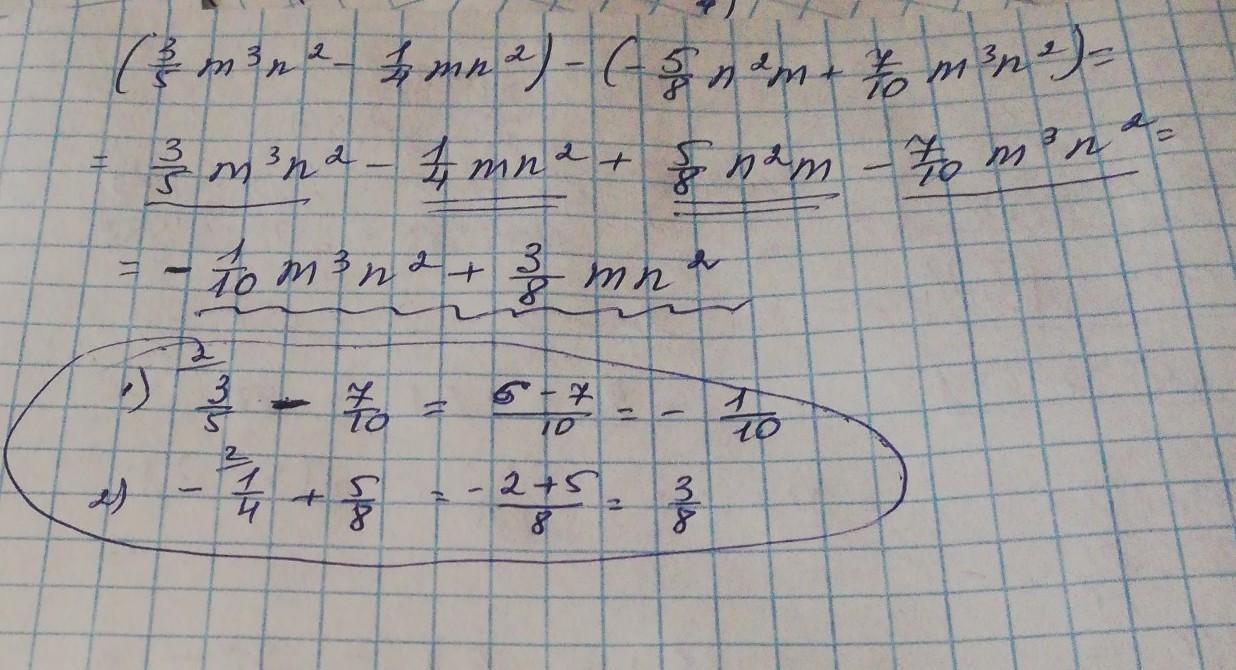 (3/5 m³n² - 1/4 mn²) - (- 5/8 n²m + 7/10 m³n²) =
= 3/5 m³n² - 1/4 mn² + 5/8 n²m - 7/10 m³n² =
= - 1/10 m³n² + 3/8 mn²
1) 3/5 ² - 7/10 = (6 - 7)/10 = - 1/10
2) - 1/4 ² + 5/8 = (- 2 + 5)/8 = 3/8